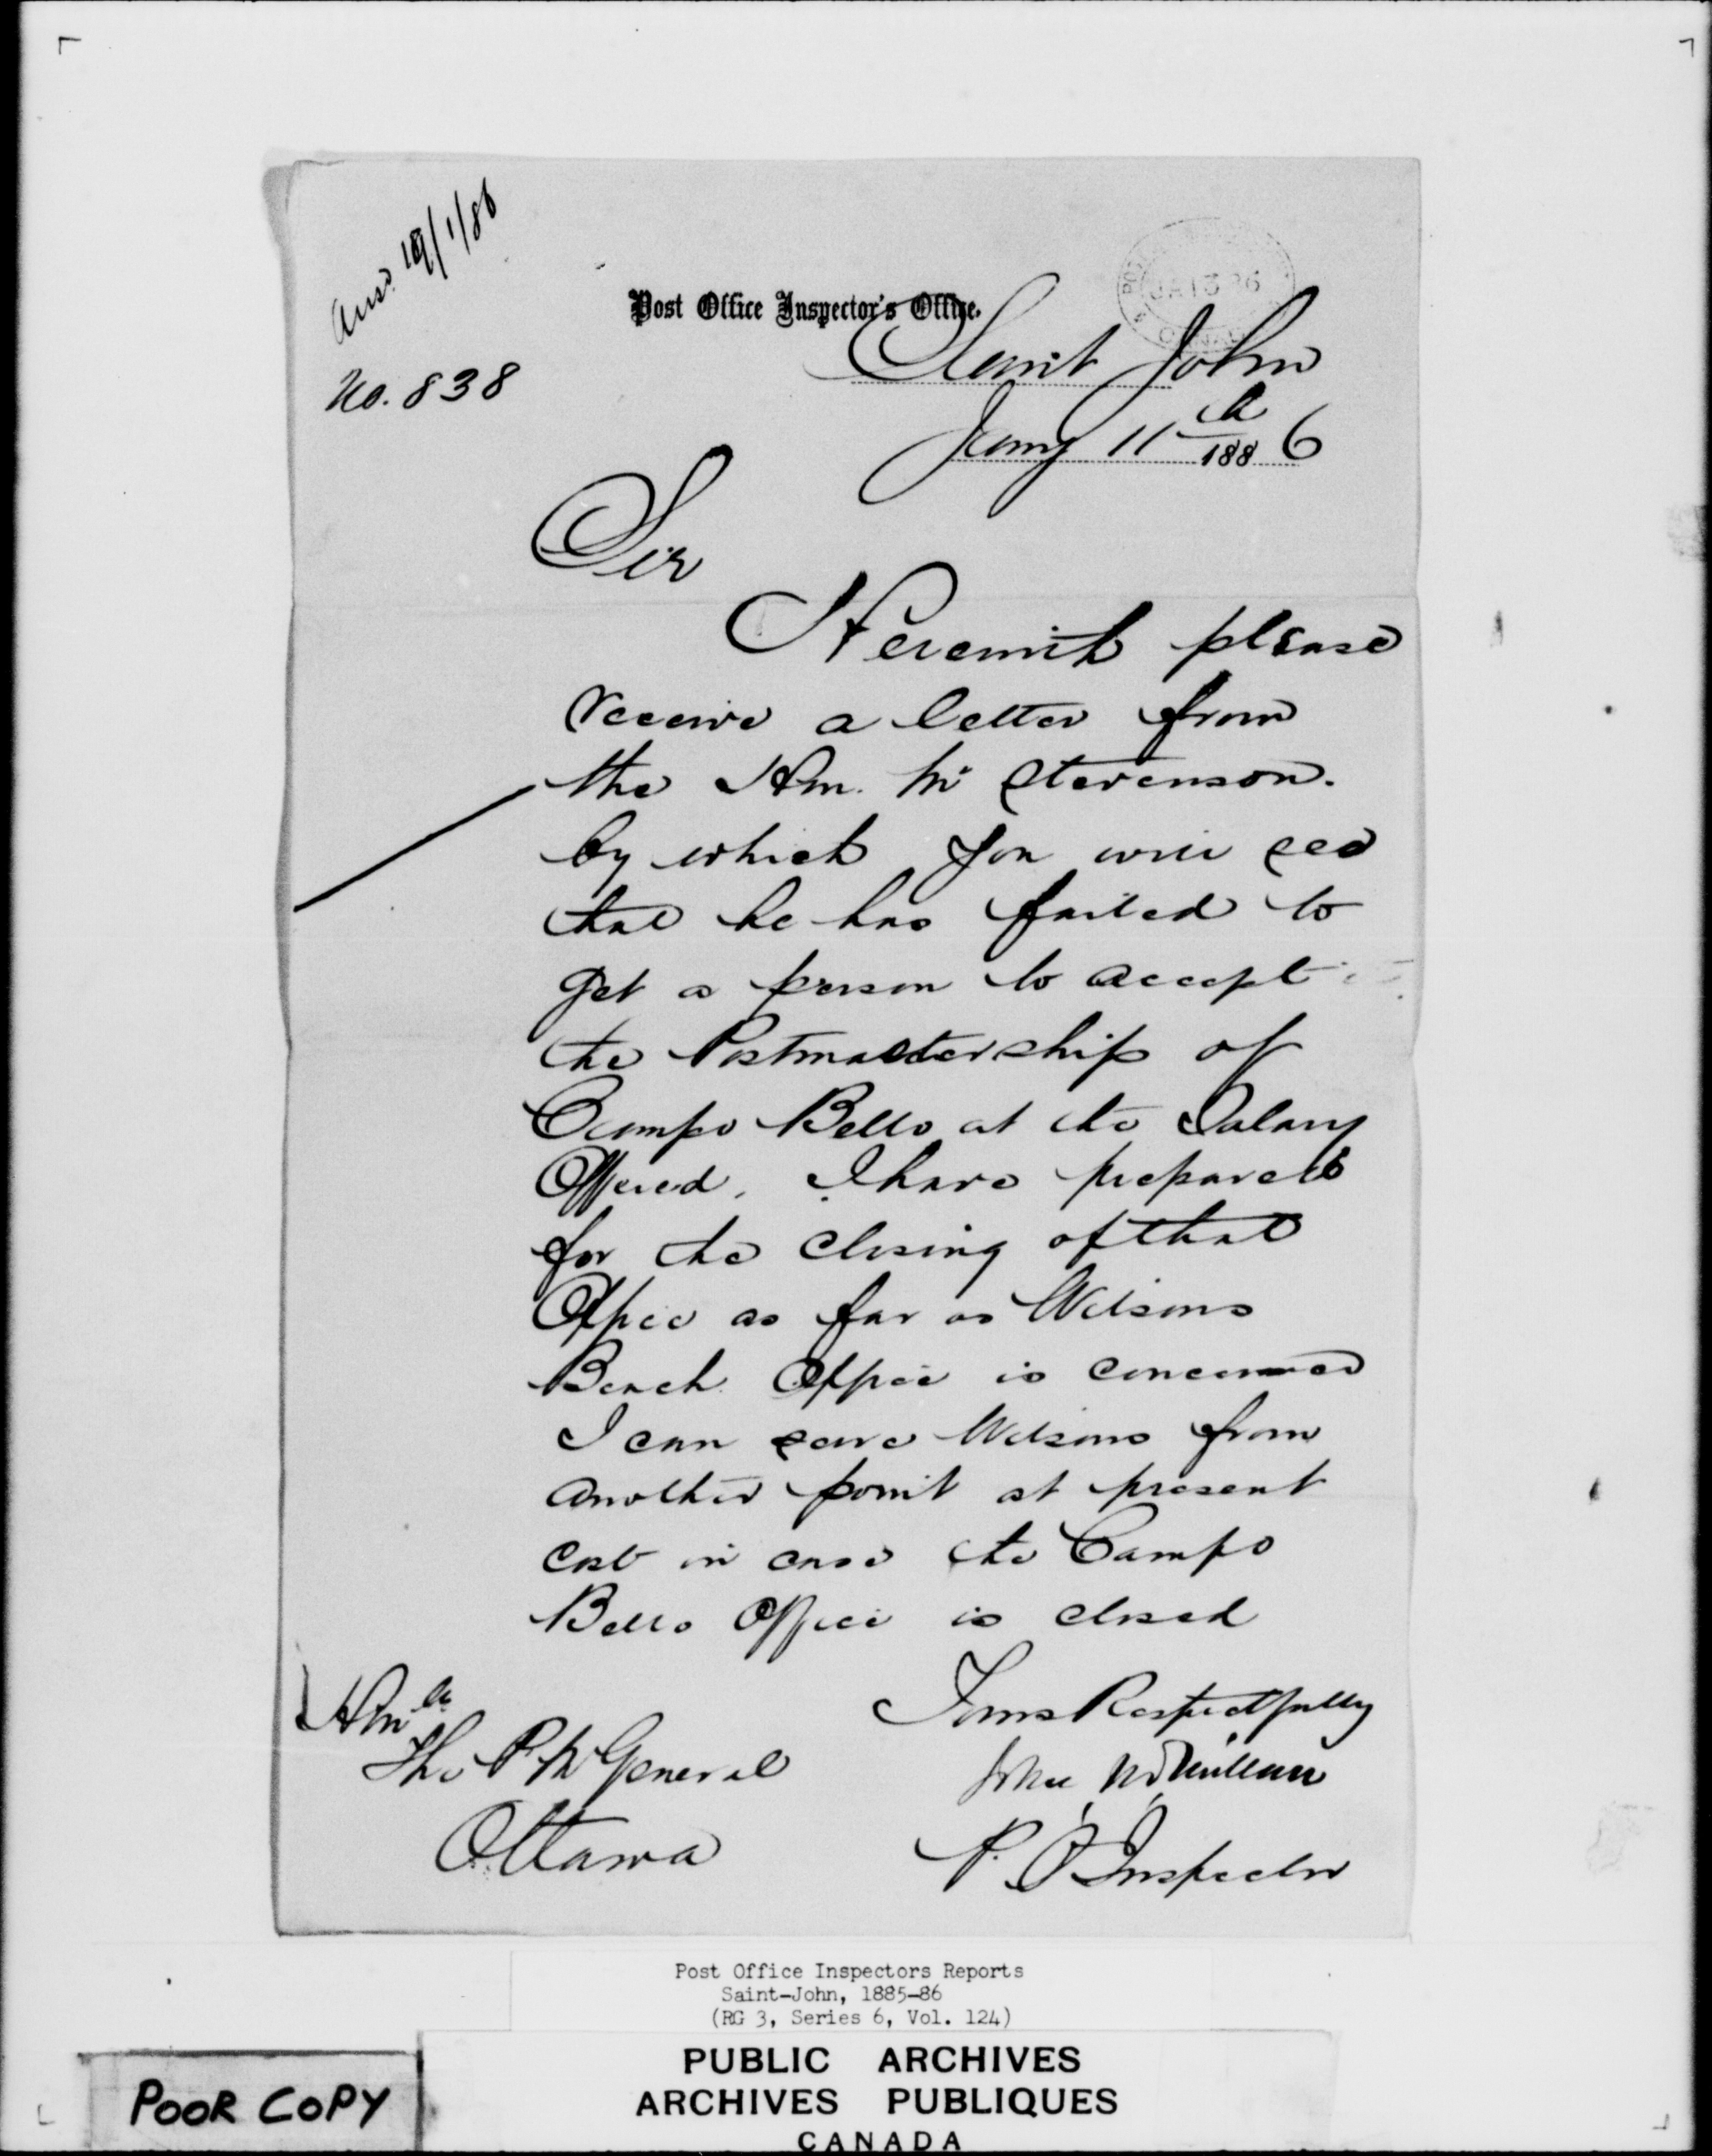 Ansd. 19/1/86
No. 838
Post Office Inspector's Office.
JA 13 86
Saint John
Jany 11th 1886
Sir
Herewith please
receive a letter from
the Hon. Mr Stevenson.
by which you will see
that he has failed to
get a person to accept
the Postmastership of
Campo Bello at the Salary
Offered. I have prepared
for the closing of that
Office as far as Wilsons
Beach Office is concerned
I can serve Wilsons from
another point at present
cost in case the Campo
Bello Office is closed
Yours Respectfully
John McMillan
P. O Inspector
Honble
The P. M General
Ottawa
Post Office Inspectors Reports
Saint-John, 1885-86
(RG 3, Series 6, Vol. 124)
POOR COPY
PUBLIC ARCHIVES
ARCHIVES PUBLIQUES
CANADA